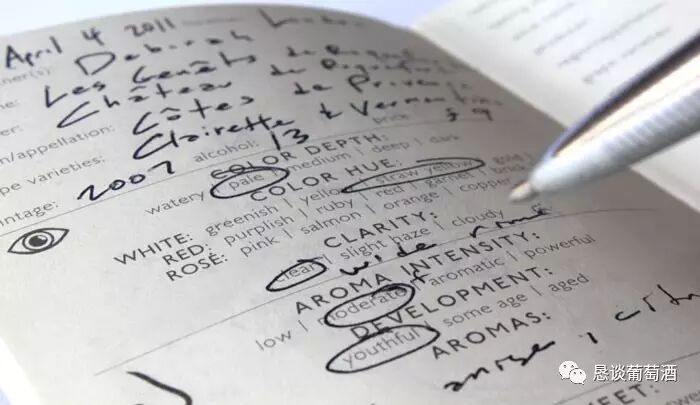 April 4 2011
Deborah
Les Genêts de
Château de Roquefort
Côtes de Provence
n/appellation: Clairette & Vermentino
pe varieties: 13 price $9
intage: 2007 alcohol:
COLOR DEPTH:
watery | pale | medium | deep | dark
COLOR HUE:
WHITE: greenish | yellow | straw yellow | gold |
RED: purplish | ruby | red | garnet | brick
ROSÉ: pink | salmon | orange | copper
CLARITY:
clear | slight haze | cloudy
wide
AROMA INTENSITY:
low | moderate | aromatic | powerful
DEVELOPMENT:
youthful | some age | aged
AROMAS:
anise
EET:
恳谈葡萄酒